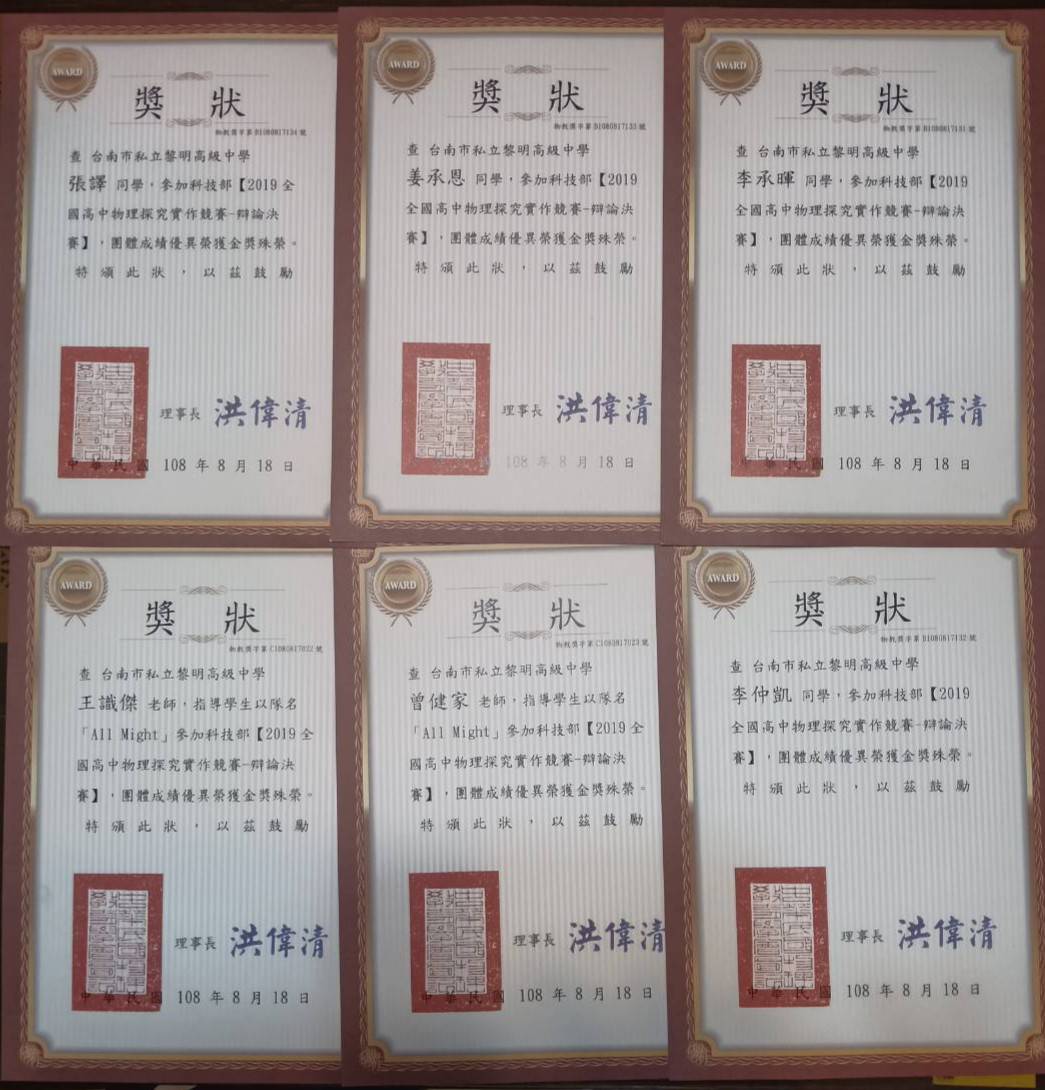 AWARD
獎 狀
物教獎字第 B1080817134 號
查 台南市私立黎明高級中學
張譯 同學，參加科技部【2019 全
國高中物理探究實作競賽-辯論決
賽】，團體成績優異榮獲金獎殊榮。
特頒此狀，以茲鼓勵
理事長 洪偉清
中華民國 108 年 8 月 18 日
AWARD
獎 狀
物教獎字第 B1080817133 號
查 台南市私立黎明高級中學
姜承恩 同學，參加科技部【2019
全國高中物理探究實作競賽-辯論決
賽】，團體成績優異榮獲金獎殊榮。
特頒此狀，以茲鼓勵
理事長 洪偉清
108 年 8 月 18 日
AWARD
獎 狀
物教獎字第 B1080817131 號
查 台南市私立黎明高級中學
李承暉 同學，參加科技部【2019
全國高中物理探究實作競賽-辯論決
賽】，團體成績優異榮獲金獎殊榮。
特頒此狀，以茲鼓勵
理事長 洪偉清
中華民國 108 年 8 月 18 日
AWARD
獎 狀
物教獎字第 C1080817022 號
查 台南市私立黎明高級中學
王識傑 老師，指導學生以隊名
「All Might」參加科技部【2019 全
國高中物理探究實作競賽-辯論決
賽】，團體成績優異榮獲金獎殊榮。
特頒此狀，以茲鼓勵
理事長 洪偉清
中華民國 108 年 8 月 18 日
AWARD
獎 狀
物教獎字第 C1080817023 號
查 台南市私立黎明高級中學
曾健家 老師，指導學生以隊名
「All Might」參加科技部【2019 全
國高中物理探究實作競賽-辯論決
賽】，團體成績優異榮獲金獎殊榮。
特頒此狀，以茲鼓勵
理事長 洪偉清
中華民國 108 年 8 月 18 日
AWARD
獎 狀
物教獎字第 B1080817132 號
查 台南市私立黎明高級中學
李仲凱 同學，參加科技部【2019
全國高中物理探究實作競賽-辯論決
賽】，團體成績優異榮獲金獎殊榮。
特頒此狀，以茲鼓勵
理事長 洪偉清
中華民國 108 年 8 月 18 日